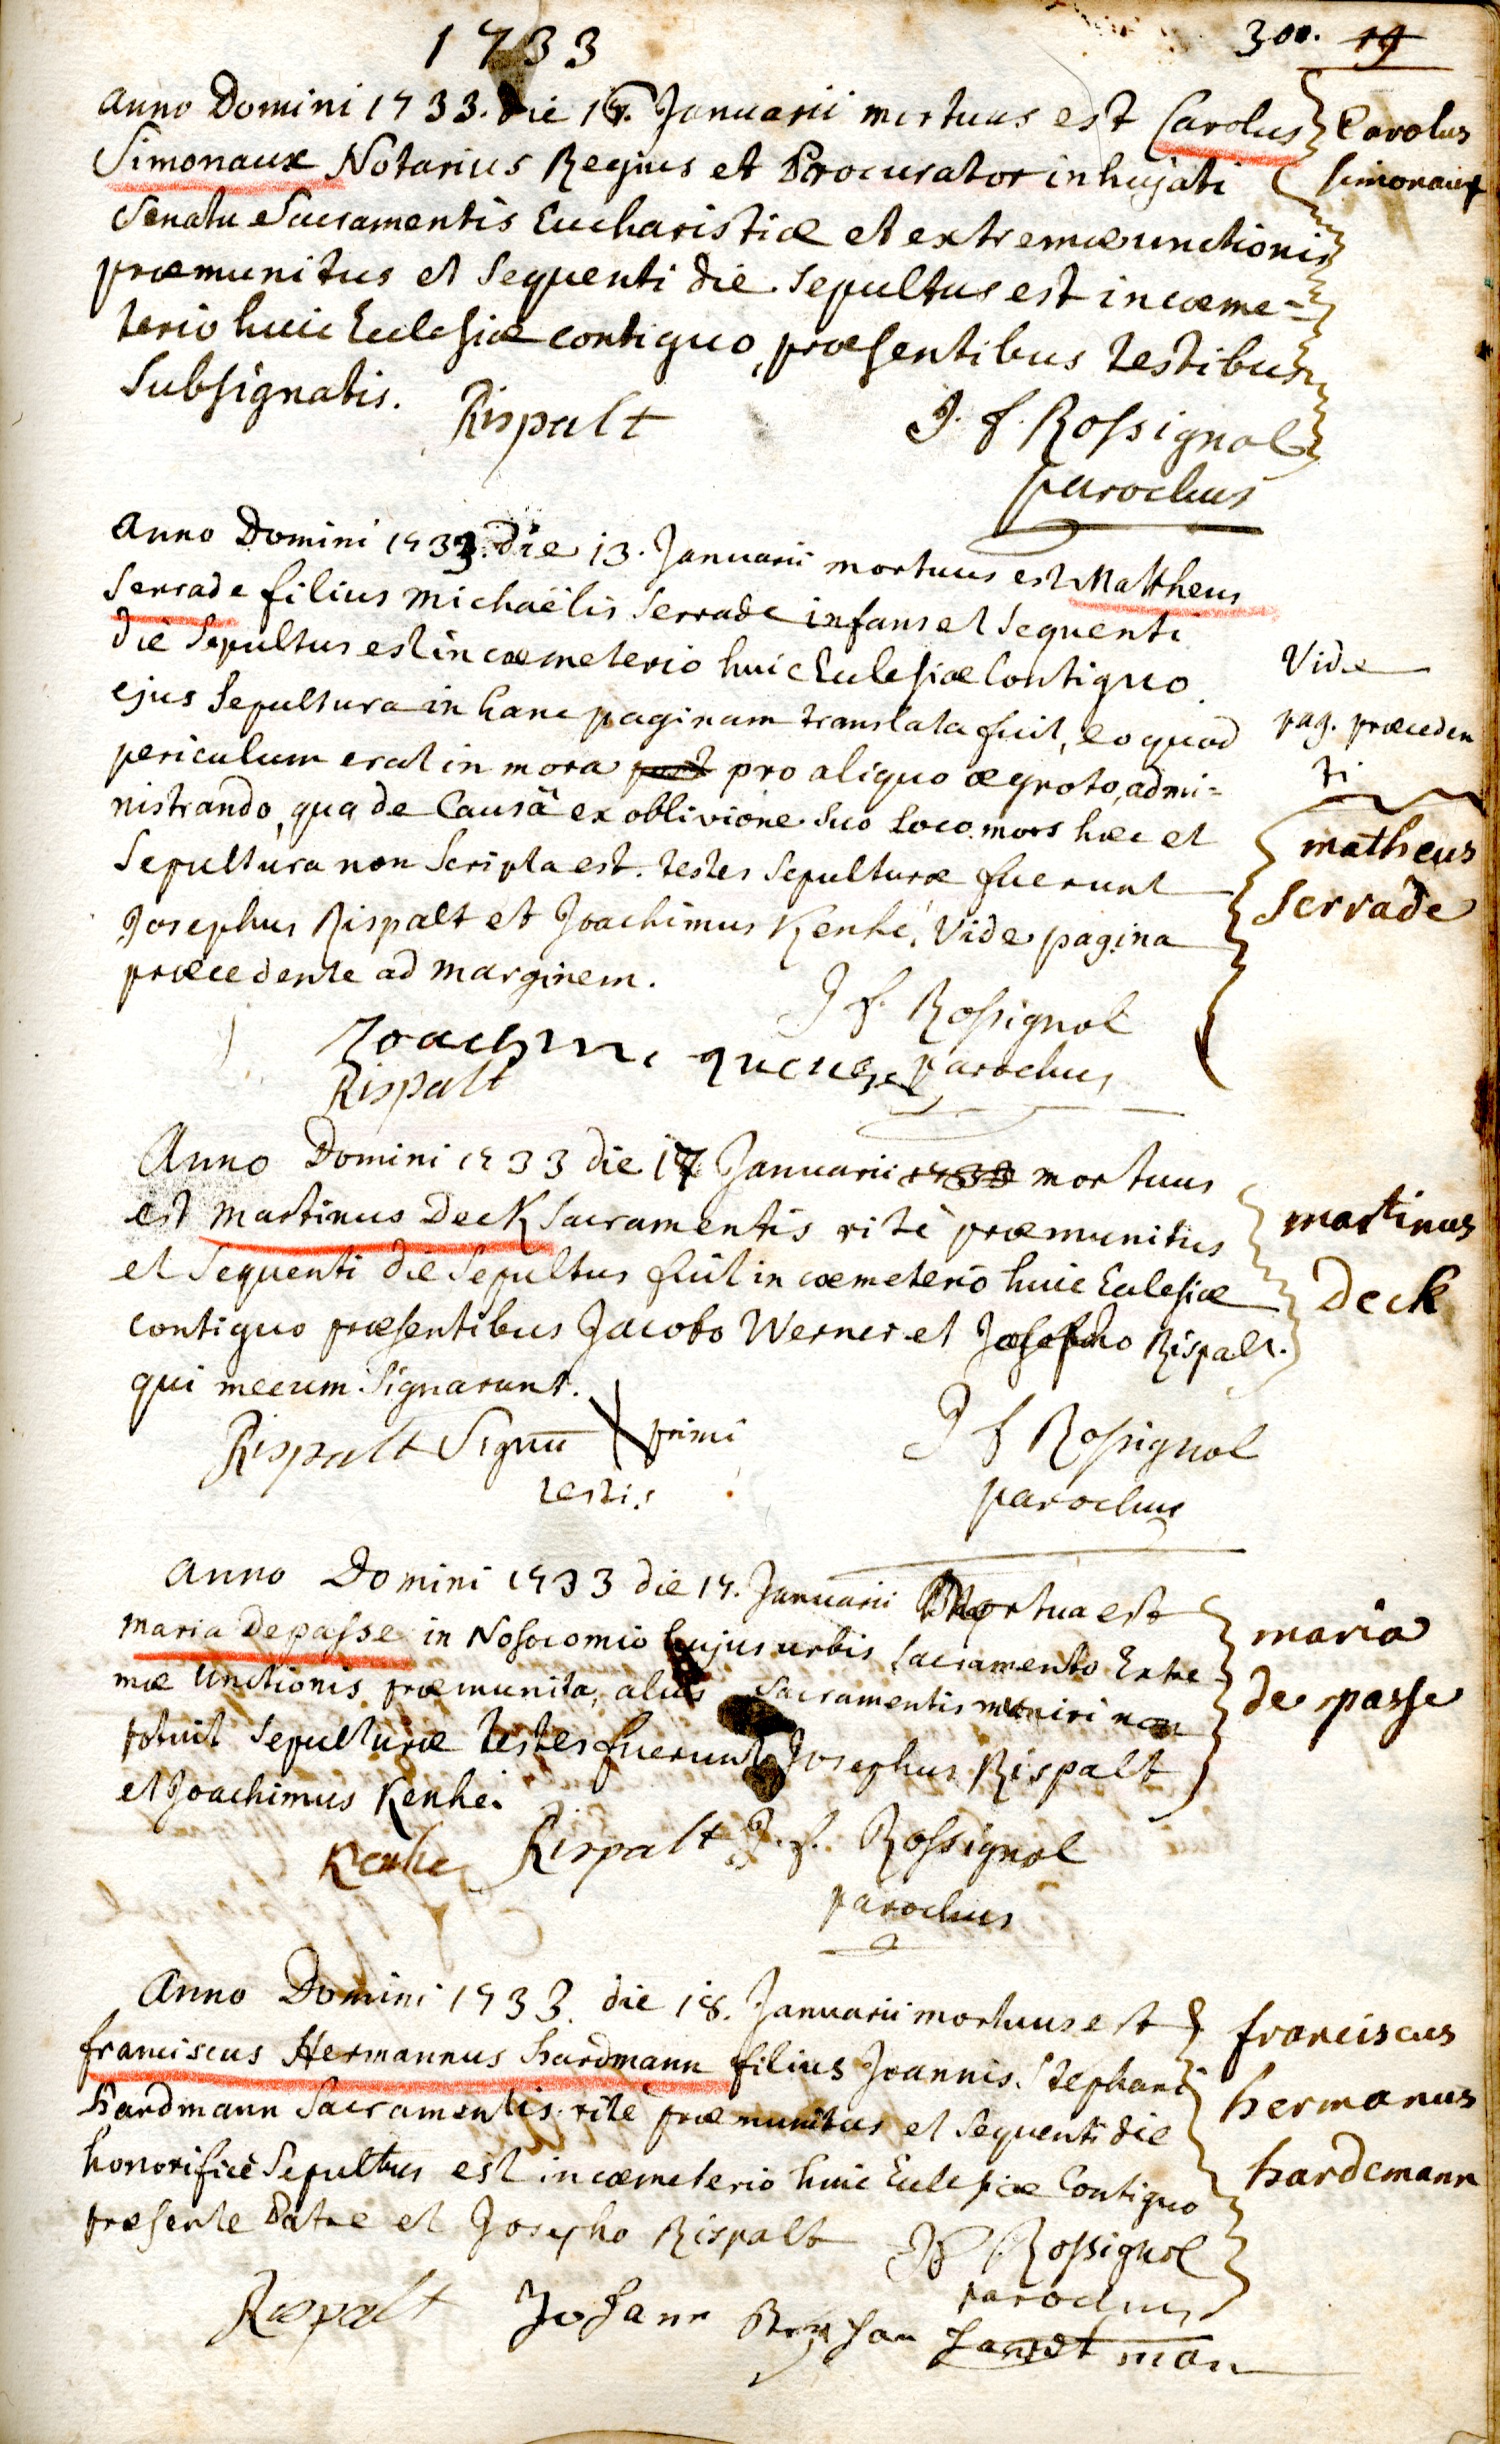 1733
300. 19
Anno Domini 1733. die 17. Januarii mortuus est Carolus
Simonaux Notarius Regius et Procurator in hujati
Senatu Sacramentis Eucharistiæ et extremæ unctionis
præmunitus et sequenti die sepultus est in cœme=
terio huic Ecclesiæ contiguo, præsentibus testibus
subsignatis.
Carolus
simonaux
Rispalt
J. f. Rossignol
parochus
Anno Domini 1733. die 13. Januarii mortuus est Mattheus
Serrade filius Michaëlis Serrade infans et sequenti
die sepultus est in cœmeterio huic Ecclesiæ Contiguo
ejus Sepultura in hanc paginam translata fuit, eo quod
periculum erat in mora pro aliquo ægroto, admi=
nistrando, qua de Causâ ex oblivione suo loco mors hæc et
Sepultura non scripta est. testes Sepulturæ fuerunt
Josephus Rispalt et Joachimus Kenhé, Vide pagina
præcedente ad marginem.
Vide
pag. præceden
ti
matheus
Serrade
J f. Rossignol
parochus
Joachim
Rispalt
Anno Domini 1733 die 17 Januarii mortuus
est Martinus Deck Sacramentis ritè præmunitus
et sequenti die Sepultus fuit in cœmeterio huic Ecclesiæ
contiguo præsentibus Jacobo Werner et Josepho Rispalt.
qui mecum signarunt.
martinus
deck
Rispalt Signū primi
testis
J f Rossignol
parochus
Anno Domini 1733 die 17. Januarii Mortua est
Maria Depasse in Nosocomio hujus urbis sacramento Extre
mæ Unctionis præmunita, aliis Sacramentis muniri non
potuit Sepulturæ testes fuerunt Josephus Rispalt
et Joachimus Kenhé.
maria
de passe
Kenhe Rispalt J. f. Rossignol
parochus
Anno Domini 1733. die 18. Januarii mortuus est
franciscus Hermannus hardmann filius Joannis Stephani
hardmann Sacramentis ritè præmunitus et sequenti die
honorificè Sepultus est in cœmeterio huic Ecclesiæ Contiguo
præsente Patre et Josepho Rispalt
franciscus
hermanus
hardemann
Jf Rossignol
parochus
Rispalt Johann